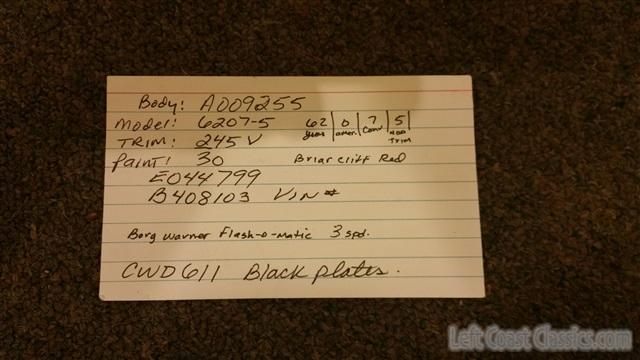 Body: A009255
Model: 6207-5 62 | 0 | 7 | 5 |
Years | amer. | Conv | 400 Trim
TRIM: 245 V
Paint: 30 Briar cliff Red
E044799
B408103 VIN #
Borg Warner Flash-o-Matic 3 spd.
CWD611 Black plates.
Left Coast Classics.com